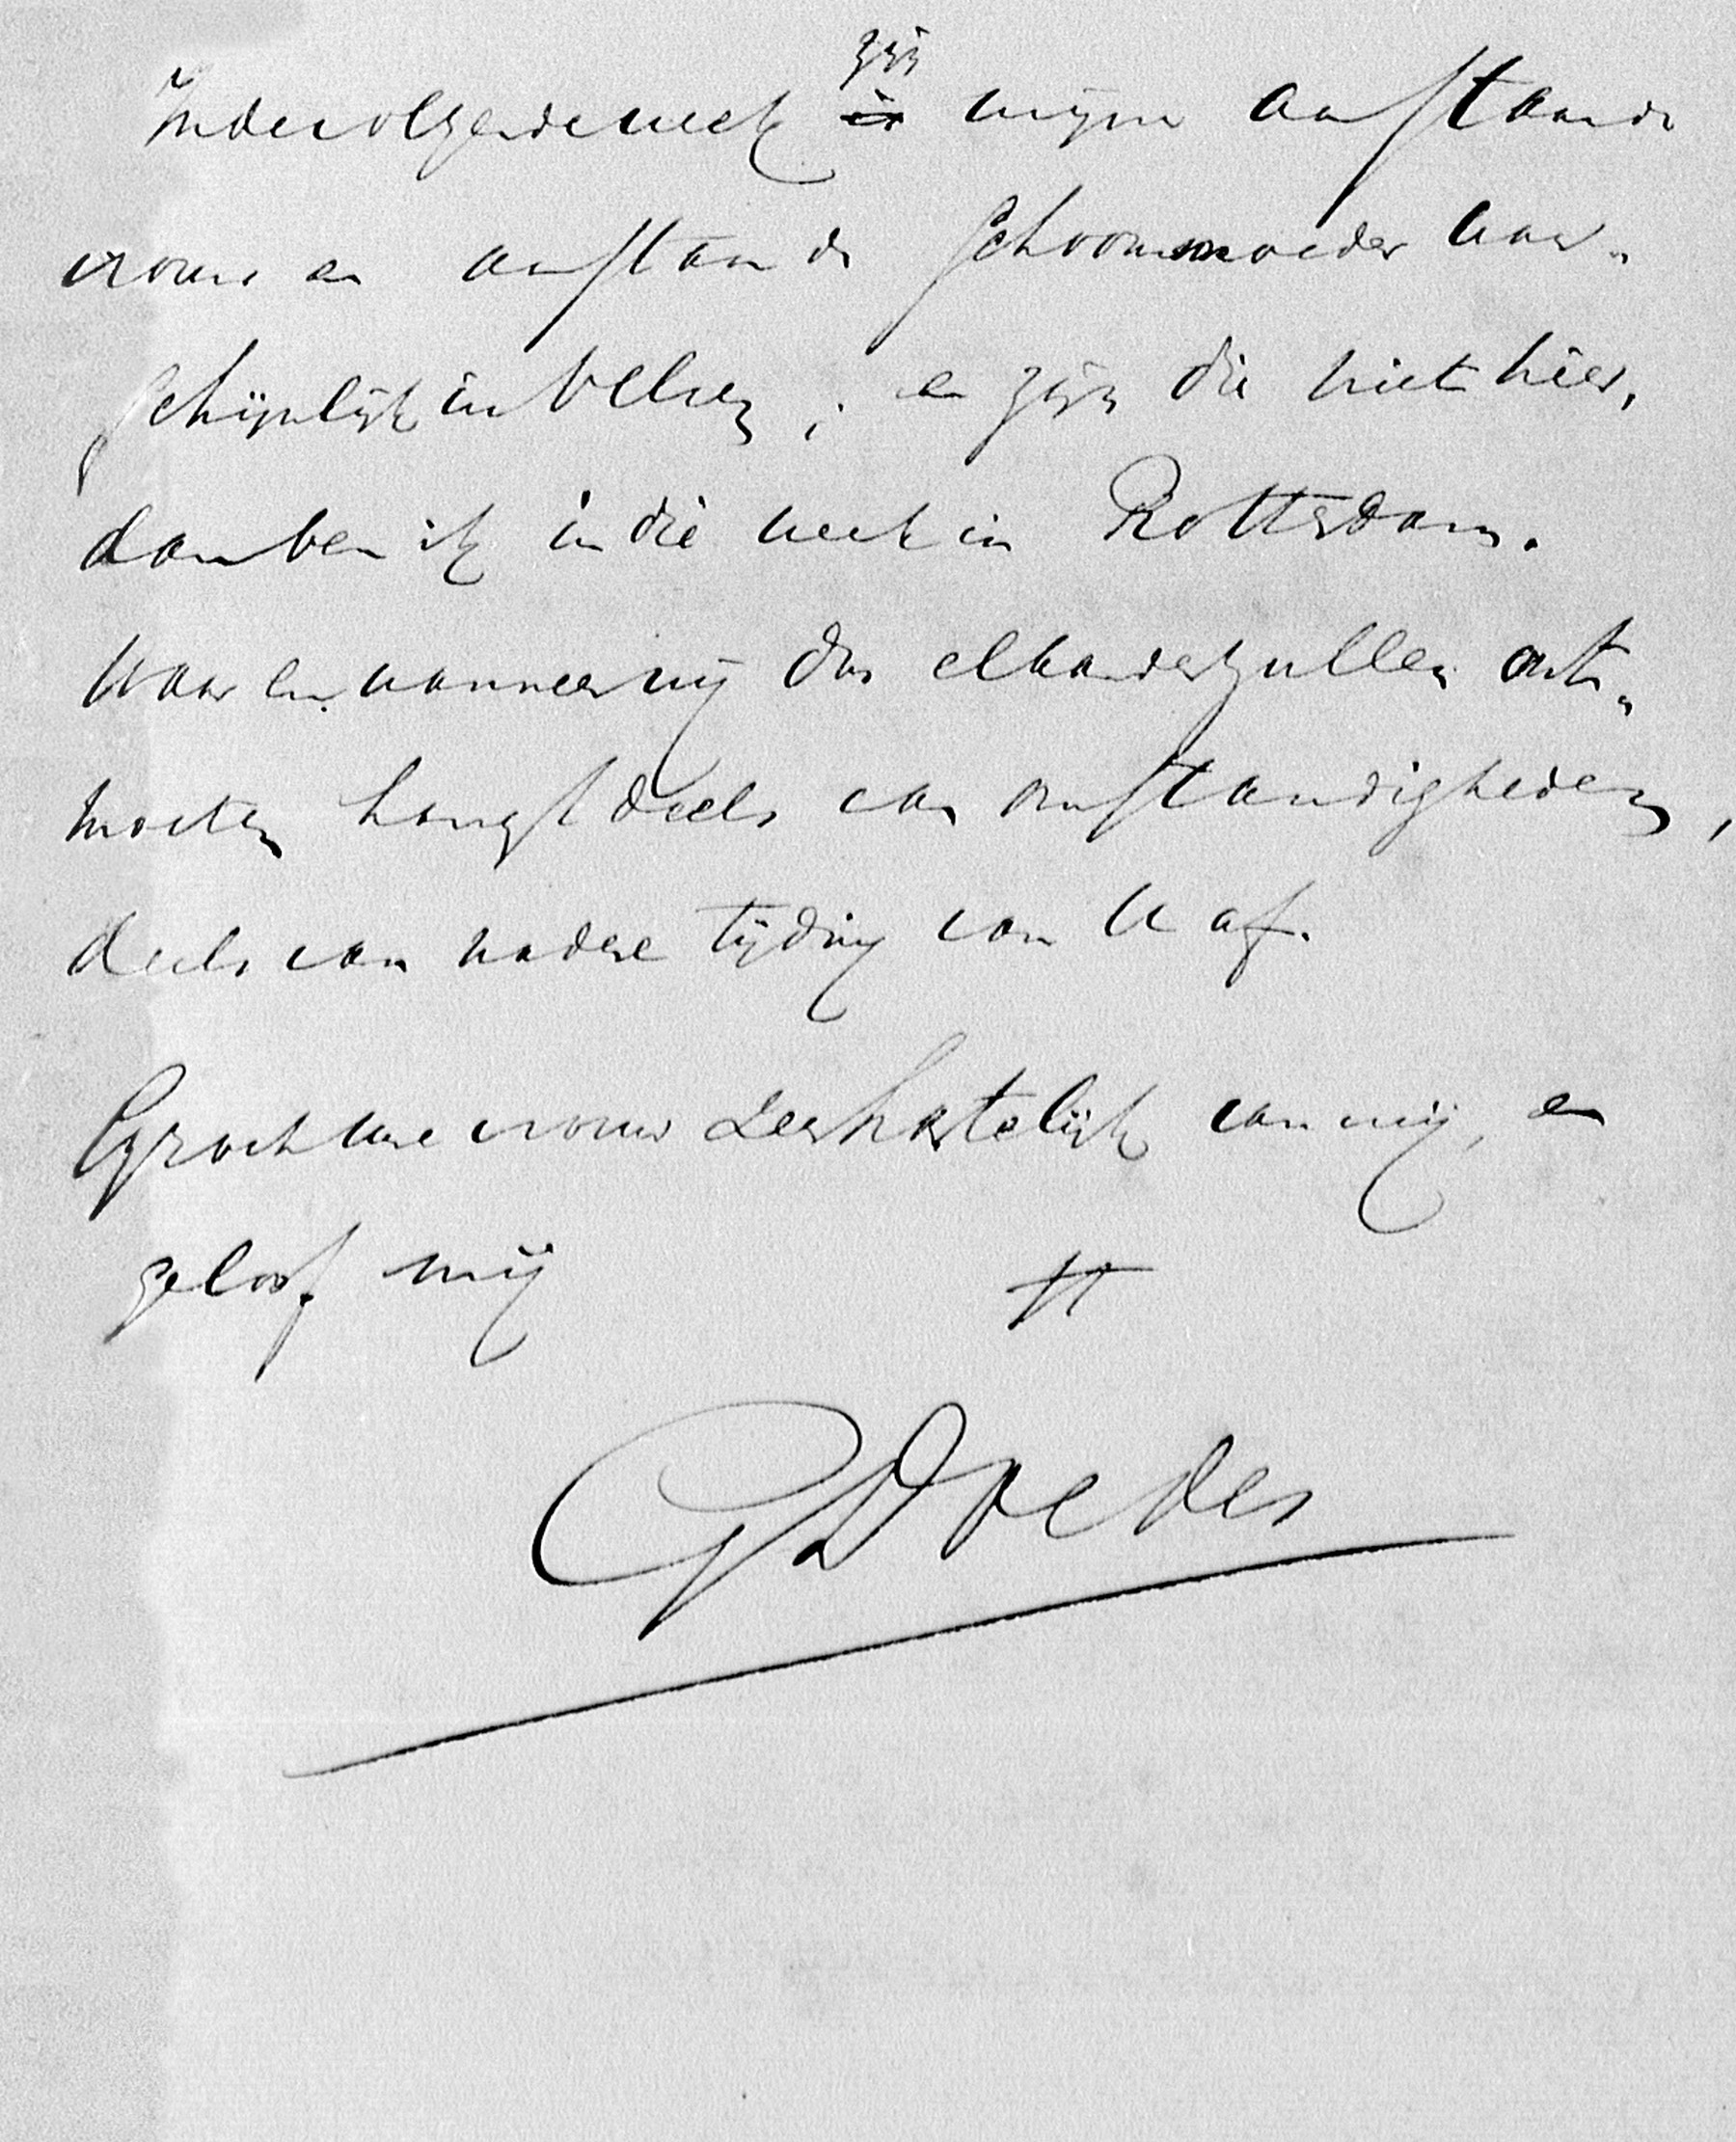 zijn
In de volgende week is mijn aanstaande
vrouw en aanstaande schoonmoeder waar-
schijnlijk in Velsen; en zijn die niet hier,
dan ben ik in die week in Rotterdam.
Waar en wanneer wij dus elkander zullen ont-
moeten hangt deels van omstandigheden,
deels van nadere tijding van U af.
Groet uwe vrouw zeer hartelijk van mij, en
geloof mij tt
GDoedes